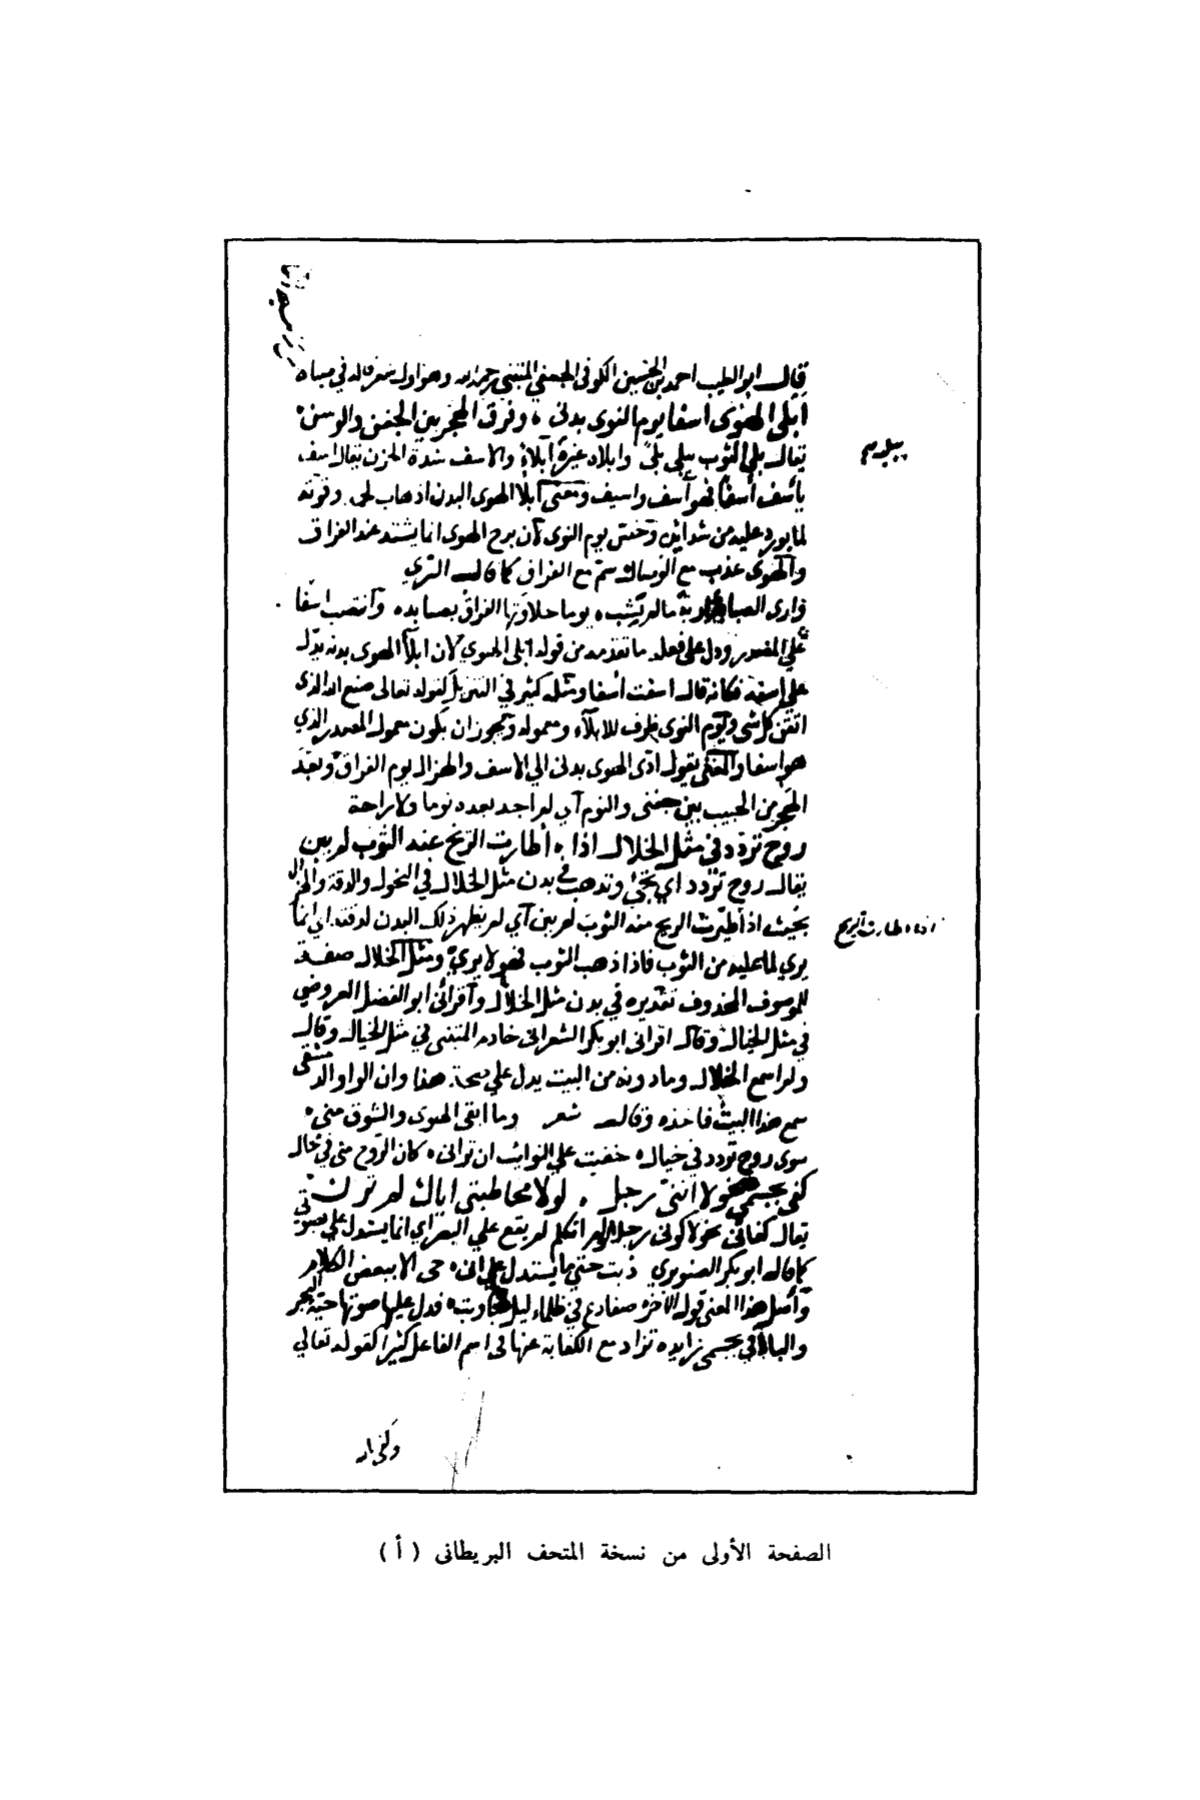 قال ابو الطيب احمد بن الحسين الكوفي الجعفي المتنبي رحمه الله وهو اول شعر قاله في صباه
ابلى الهوى اسفا يوم النوى بدني ٥ وفرق الهجر بين الجفن والوسن
يقال بلي الثوب يبلى بلىً وابلاه غيره ابلاءً والاسف شدة الحزن يقال اسف
يأسف أسفاً فهو آسف واسيف ومعنى ابلا الهوى البدن اذهاب لحمه وقوته
لما يورد عليه من شدائده وخص يوم النوى لان برح الهوى انما يشتد عند الفراق
والهوى عذب مع الوصال سم مع الفراق كما قال السري
وارى الصبابة اربة ما لم يشب ٥ يوما حلاوتها الفراق بصابه ٥ وانتصب اسفا
على المصدر ودل على فعله ما تقدمه من قوله ابلى الهوى لان ابلا الهوى بدنه يدل
على اسفه فكانه قال اسفت أسفا ومثله كثير في التنزيل كقوله تعالى صنع الله الذى
اتقن كل شى ويوم النوى ظرف للابلاء ومعموله ويجوز ان يكون معمول المصدر الذي
هو اسفا والمعنى يقول ادى الهوى بدنى الي الاسف والهزال يوم الفراق وبعد
الهجر من الحبيب بين جفنى والنوم اي لم اجد بعده نوما ولا راحة
روح تردد في مثل الخلال اذا ٥ أطارت الريح عنه الثوب لم يبن
يقال روح تردد اي يجئ وتذهب في بدن مثل الخلال في النحول والدقة والهزال
بحيث اذا طيرت الريح عنه الثوب لم يبن اي لم يظهر ذلك البدن لدقته اي انما
يري لما عليه من الثوب فاذا ذهب الثوب فهو لا يري ومثل الخلال صفة
لموصوف المحذوف تقديره في بدن مثل الخلال واقرائى ابو الفضل العروضي
في مثل الخيال وقال اقرانى ابو بكر الشعرانى خادم المتنبى في مثل الخيال وقال
ولم اسمع الخلال وما دونه من البيت يدل علي صحة هذا وان الواو الدمشقى
سمع هذا البيت فاخذه وقال شعر وما ابقى الهوى والشوق منى ٥
سوى روح تردد في خيال ٥ خفيت علي النوائب ان ترانى ٥ كان الروح منى في محال
كفى بجسمي نحولا اننى رجل ٥ لولا مخاطبتى اياك لم ترن
يقال كفانى نحولا كونى رجلا لو لم اتكلم لم يقع علي البصر اي انما يستدل علي بصوتي
كما قال ابو بكر الصنوبري ذبت حتى ما يستدل على انى ٥ حى الا ببعض الكلام
وأصل هذا المعنى قول الاخر ٥ ضفادع في ظلماء ليل تجاوبت ٥ فدل عليها صوتها حية البحر
والبا في بجسمى زايده تزاد مع الكفاية عنها فى اسم الفاعل كثيرا كقوله تعالي
وكفى بالله
اذا اطارت الريح
الصفحة الأولى من نسخة المتحف البريطانى ( أ )